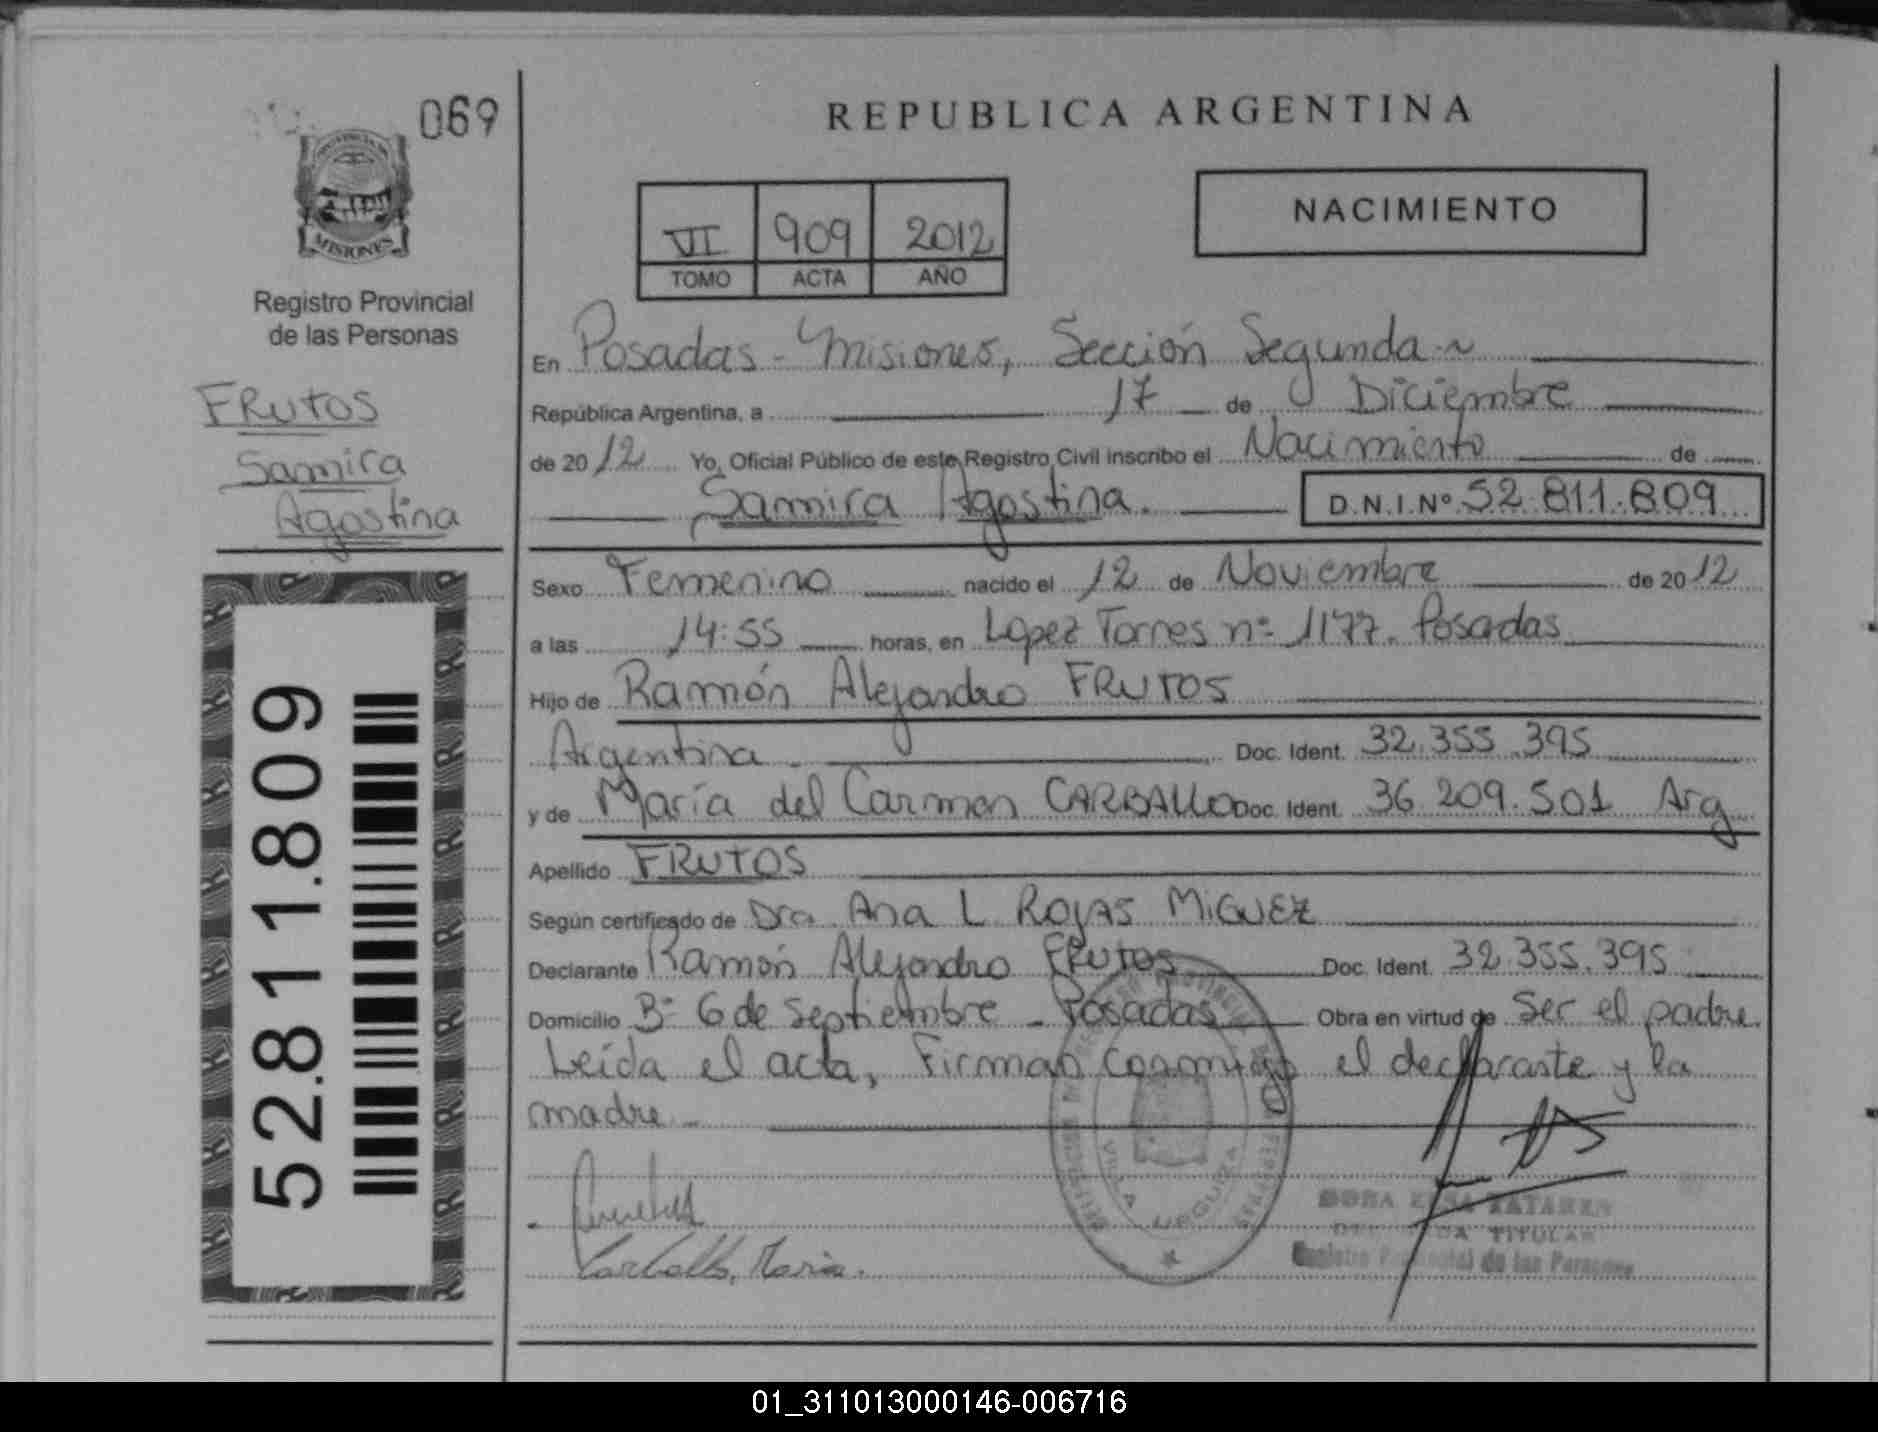 069
PROVINCIA DE
MISIONES
Registro Provincial
de las Personas
FRUTOS
Samira
Agostina
52.811.809
REPUBLICA ARGENTINA
VI 909 2012
TOMO ACTA AÑO
NACIMIENTO
En Posadas - Misiones, Sección Segunda
República Argentina, a 17 de Diciembre
de 2012 Yo, Oficial Público de este Registro Civil inscribo el Nacimiento de
Samira Agostina. D.N.I.Nº 52.811.809
Sexo Femenino nacido el 12 de Noviembre de 2012
a las 14:55 horas, en Lopez Torres nº 1177. Posadas
Hijo de Ramón Alejandro FRUTOS
Argentina. Doc. Ident. 32.355.395
y de María del Carmen CARBALLO Doc. Ident. 36.209.501 Arg
Apellido FRUTOS
Según certificado de Dra. Ana L ROJAS MIGUEZ
Declarante Ramón Alejandro FRUTOS Doc. Ident. 32.355.395
Domicilio Bº 6 de Septiembre - Posadas Obra en virtud de Ser el padre.
Leída el acta, Firman conmigo el declarante y la
madre.
VILLA URQUIZA
Carballo, Maria.
TITULAR
Registro Provincial de las Personas
01_311013000146-006716